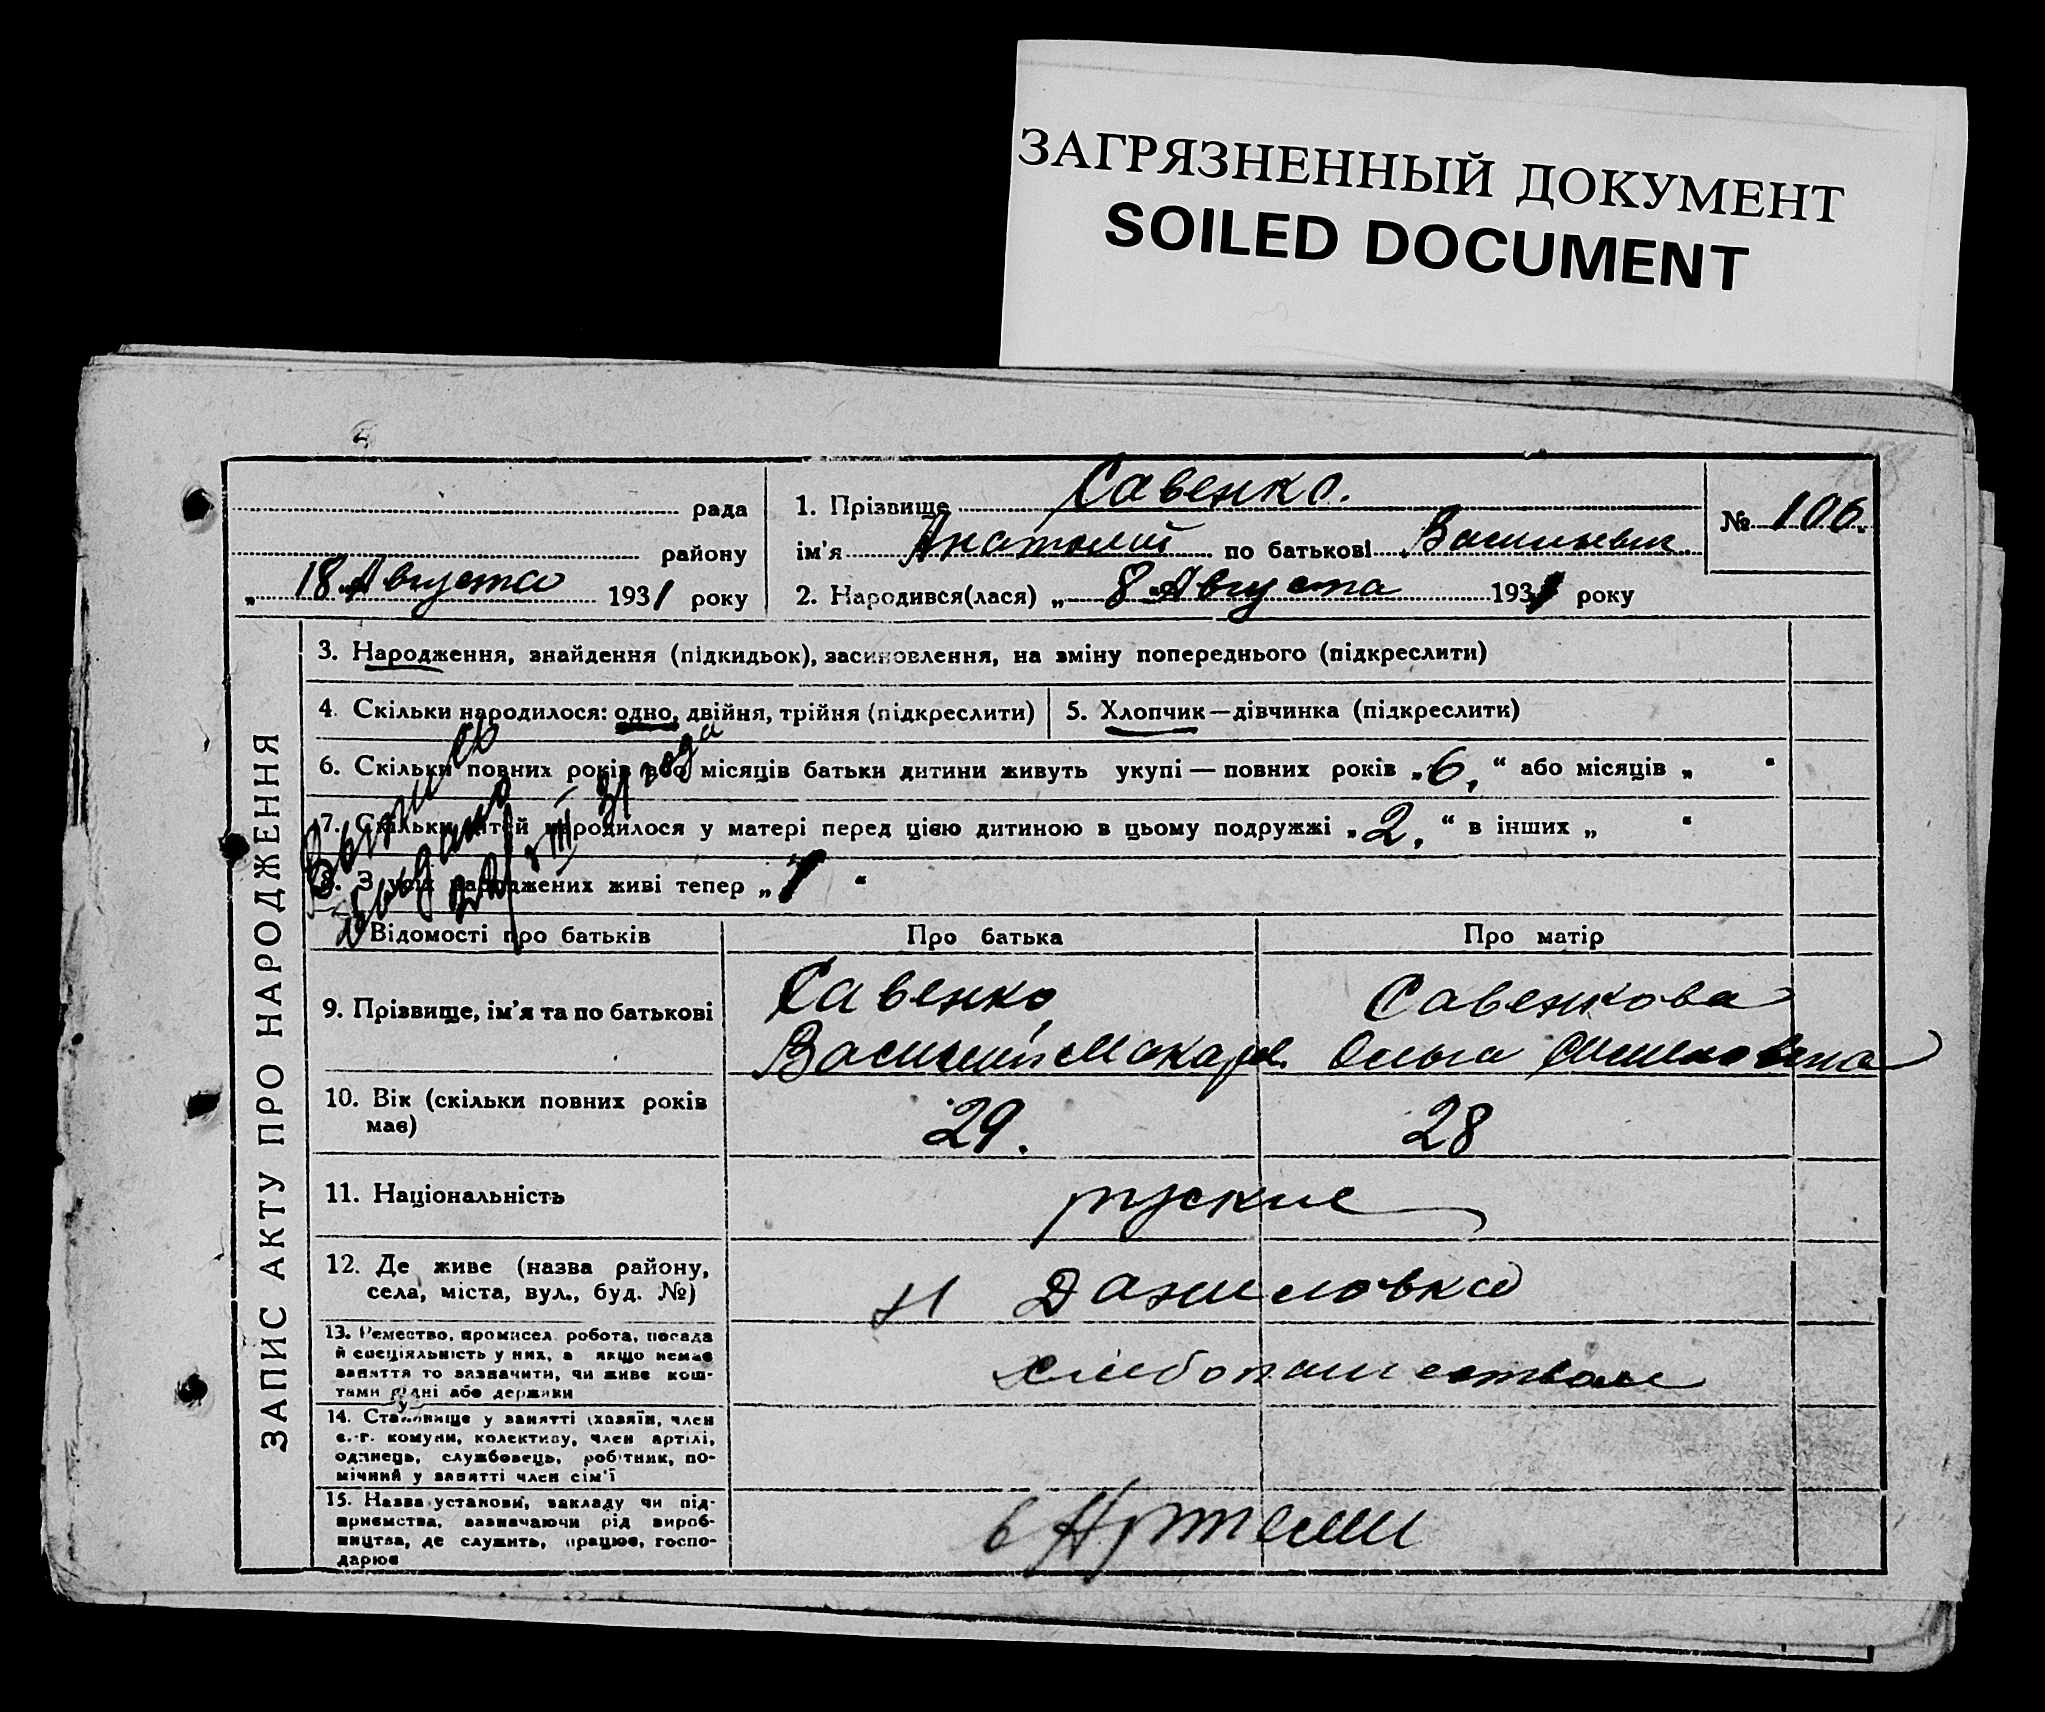 ЗАГРЯЗНЕННЫЙ ДОКУМЕНТ
SOILED DOCUMENT
158
рада
району
„ 18 " Августа 1931 року
1. Прізвище Савенко.
ім'я Анатолий по батькові Васильевич
2. Народився(лася) „ 8 " Августа 1931 року
№ 106.
ЗАПИС АКТУ ПРО НАРОДЖЕННЯ
3. Народження, знайдення (підкидьок), засиновлення, на зміну попереднього (підкреслити)
4. Скільки народилося: одно, двійня, трійня (підкреслити)
5. Хлопчик—дівчинка (підкреслити)
6. Скільки повних років або місяців батьки дитини живуть укупі — повних років „ 6, “ або місяців „ “
7. Скільки дітей народилося у матері перед цією дитиною в цьому подружжі „ 2. “ в інших „ “
8. З усіх народжених живі тепер „ 1 “
Выпись
выдано
31 года
Відомості про батьків
Про батька
Про матір
9. Прізвище, ім'я та по батькові
Савенко
Василий Макаров.
Савенкова
Ольга
10. Вік (скільки повних років має)
29.
28
11. Національність
руские
12. Де живе (назва району,
села, міста, вул., буд. №)
Н Даниловка
13. Ремество, промисел, робота, посада
й спеціяльність у них, а якщо немає
заняття то зазначити, чи живе кош-
тами рідні або держави
хлебопашеством
14. Становище у занятті (хазяїн, член
с.-г. комуни, колективу, член артілі,
одинець, службовець, робітник, по-
мічний у занятті член сім'ї
15. Назва установи, закладу чи під-
приємства, зазначаючи рід вироб-
ництва, де служить, працює, госпо-
дарює
в Артели